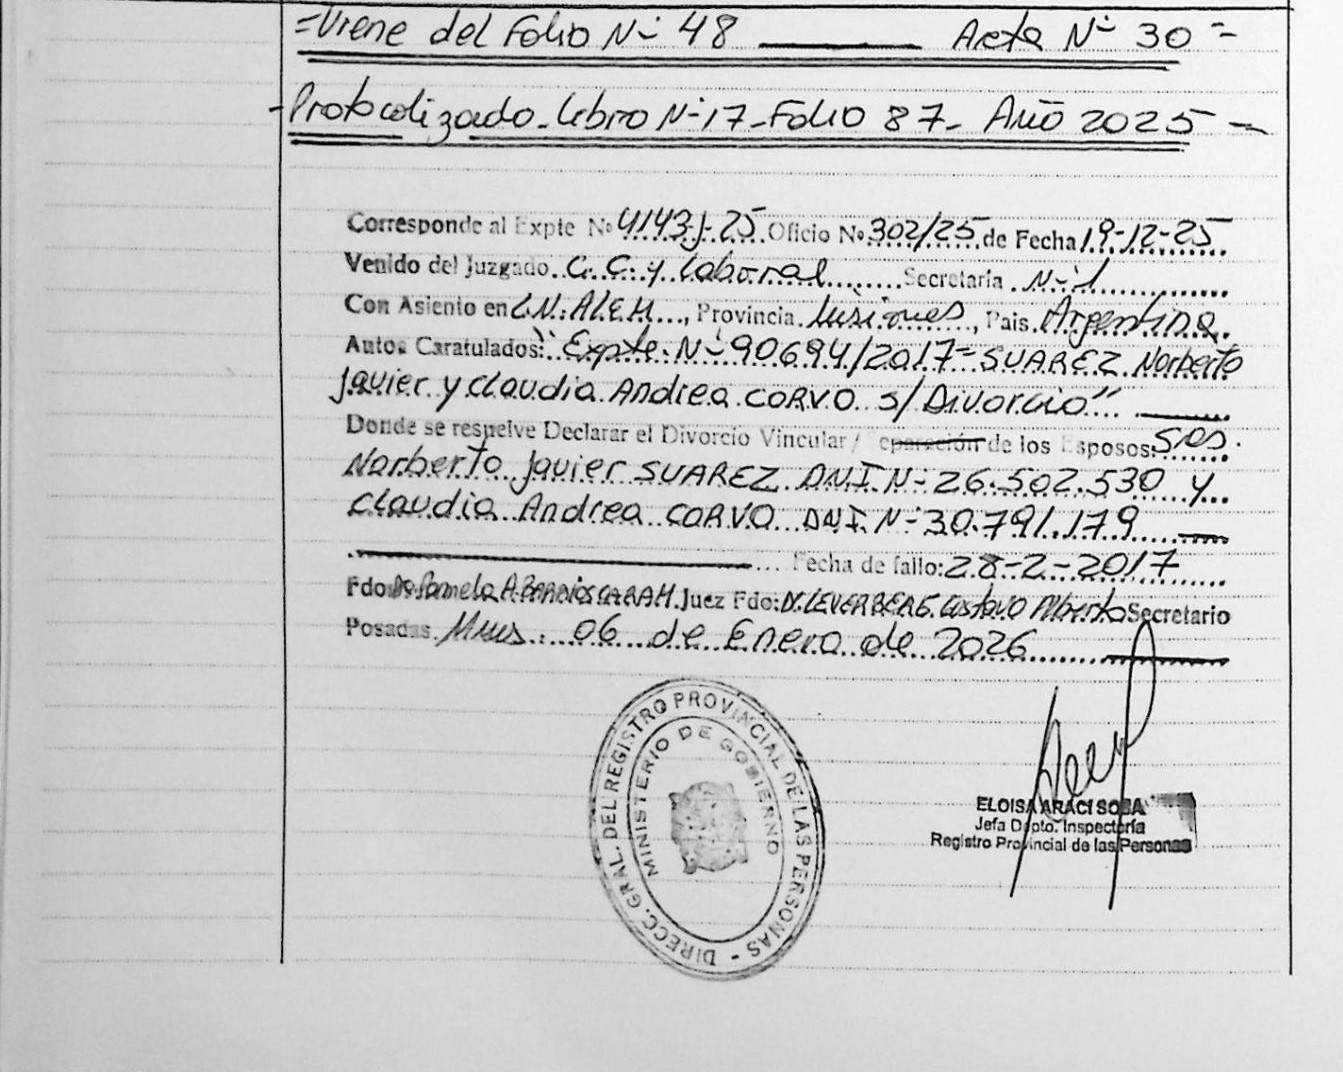 =Viene del Folio N- 48 ——— Acta N- 30 =
-Protocolizado-Libro N-17-Folio 87- Año 2025-
Corresponde al Expte Nº 4143-J-25 Oficio Nº 302/25 de Fecha 19-12-25
Venido del Juzgado C. C. y Laboral Secretaría N-1
Con Asiento en L.N. ALEM, Provincia Misiones, Pais Argentina
Autos Caratulados: "Expte. N- 90694/2017- SUAREZ Norberto
Javier y Claudia Andrea CORVO s/Divorcio" ———
Donde se resuelve Declarar el Divorcio Vincular / Separación de los Esposos: Sres.
Norberto Javier SUAREZ DNI N- 26.502.530 y
Claudia Andrea CORVO DNI N- 30.791.179 —
Fecha de fallo: 28-2-2017
Fdo Pamela A. Juez Fdo: Gustavo Alberto Secretario
Posadas, Mnes. 06 de Enero de 2026
DIRECC. GRAL. DEL REGISTRO PROVINCIAL DE LAS PERSONAS -
MINISTERIO DE GOBIERNO
ELOISA ARACI SOSA
Jefa Dpto. Inspectoría
Registro Provincial de las Personas